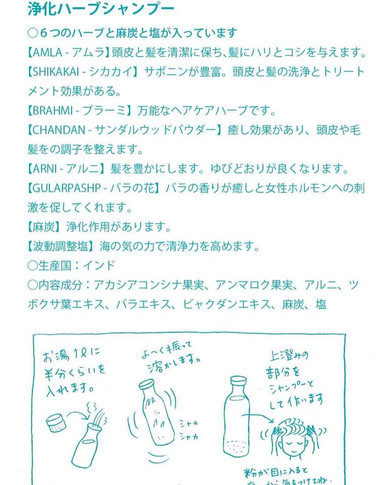 浄化ハーブシャンプー
〇６つのハーブと麻炭と塩が入っています
【AMLA - アムラ】頭皮と髪を清潔に保ち、髪にハリとコシを与えます。
【SHIKAKAI - シカカイ】サポニンが豊富。頭皮と髪の洗浄とトリート
メント効果がある。
【BRAHMI - ブラーミ】万能なヘアケアハーブです。
【CHANDAN - サンダルウッドパウダー】癒し効果があり、頭皮や毛
髪をの調子を整えます。
【ARNI - アルニ】髪を豊かにします。ゆびどおりが良くなります。
【GULARPASHP - バラの花】バラの香りが癒しと女性ホルモンへの刺
激を促してくれます。
【麻炭】浄化作用があります。
【波動調整塩】海の気の力で清浄力を高めます。
〇生産国：インド
〇内容成分：アカシアコンシナ果実、アンマロク果実、アルニ、ツ
ボクサ葉エキス、バラエキス、ビャクダンエキス、麻炭、塩
お湯1ℓに
半分くらいを
入れます。
よ〜く振って
溶かします。
シャカ
シャカ
上澄みの
部分を
シャンプーと
して作います
粉が目に入ると